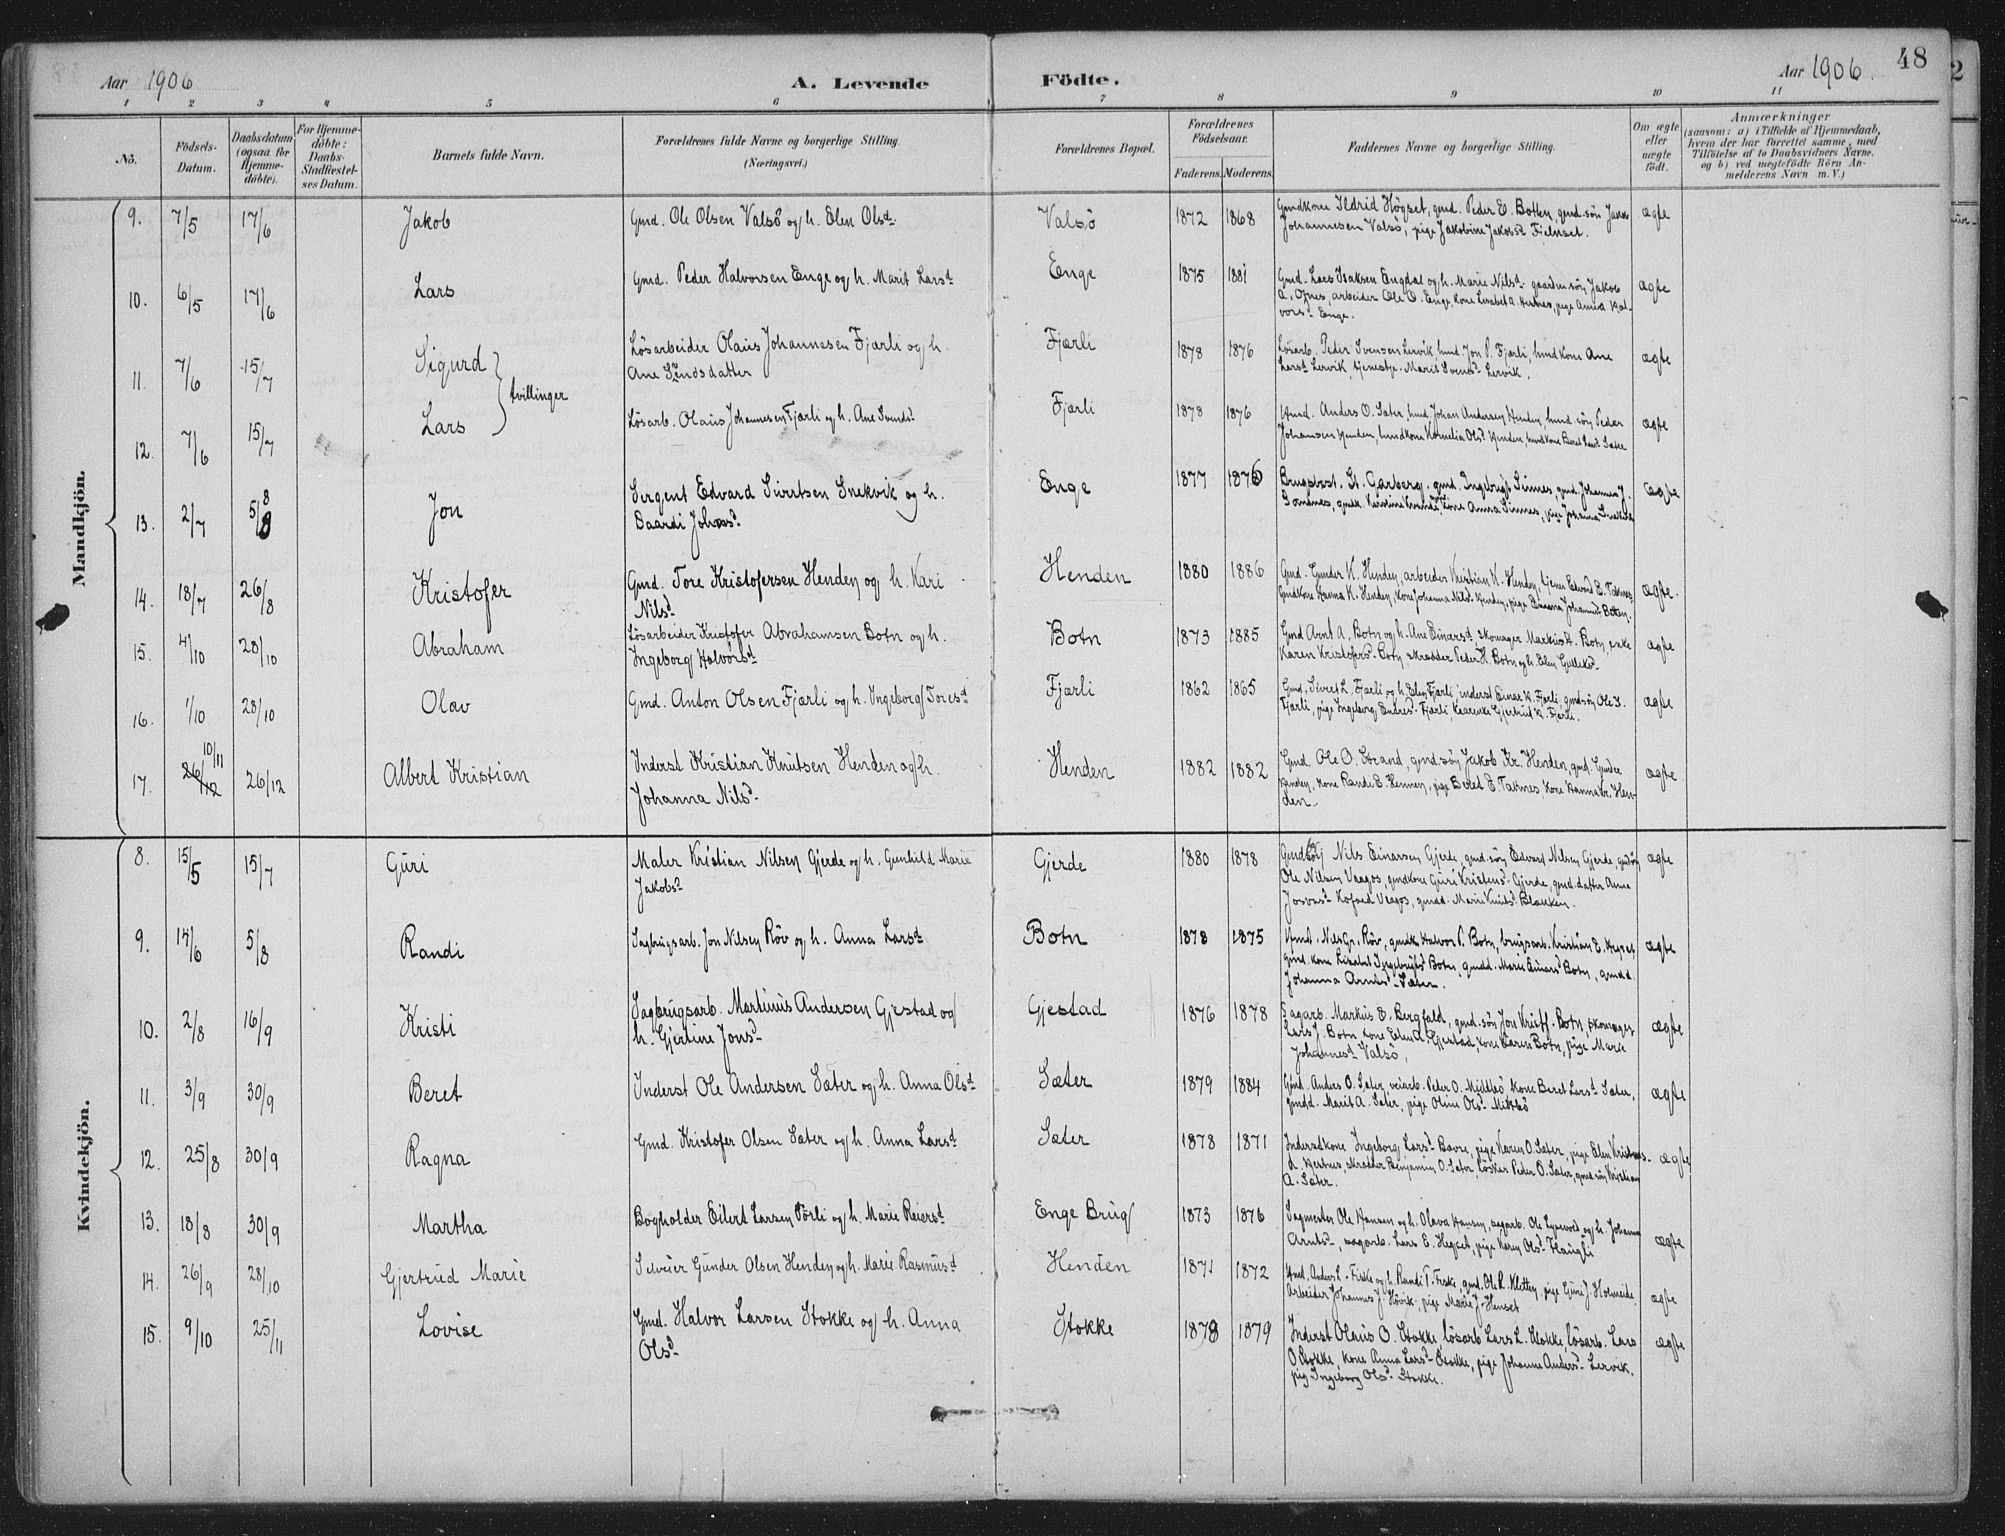 48
Aar 1906 A. Levende Födte. Aar 1906.
1 2 3 4 5 6 7 8 9 10 11
No. Födsels-Datum. Daabsdatum (ogsaa for Hjemme-döbte). For Hjemme-döbte: Daabs-Stadfæstel-ses Datum. Barnets fulde Navn. Forældrenes fulde Navne og borgerlige Stilling. (Næringsvei.) Forældrenes Bopæl. Forældrenes Födselsaar. Faderens. Moderens. Faddernes Navne og borgerlige Stilling. Om ægte eller uægte födt. Anmærkninger (saasom: a) i Tilfælde af Hjemmedaab, hvem der har forrettet samme, med Tilföielse af to Daabsvidners Navne, og b) ved uægtefödte Börn An-melderens Navn m. V.)
Mandkjön.
9. 7/5 17/6 Jakob Gmd. Ole Olsen Valsö og h. Elen Olsd. Valsö 1872 1868 Gmdkone Ildrid Högset, gmd. Peder E. Botten, gmd. sön Jakob ægte
Johannesen Valsö, pige Jakobine Jakobsd.
10. 6/5 17/6 Lars Gmd. Peder Halvorsen Enge og h. Marit Larsd. Enge 1875 1881 Gmd. Lars Isaksen Engdal og h. Marie Nilsd. gaardm. sön Jakob ægte
arbeider Ole O. Enge, kone Lisabet A. Hestnes, pige Anna Hal-
vorsd. Enge.
11. 7/6 15/7 Sigurd Lösarbeider Olaus Johannesen Fjærli og h. Fjærli 1878 1876 Lösarb. Peder Svensen Lervik, hmd. Jon P. Fjærli, hmdkone Ane ægte
tvillinger Ane Svendsdatter
Larsd. Lervik, tjenestp. Marit Svensd. Lervik.
12. 7/6 15/7 Lars Lösarb. Olaus Johannesen Fjærli og h. Ane Svendsd. Fjærli 1878 1876 Hmd. Anders O. Sæter, hmd. Johan Andersen Henden, hmd. sön Peder ægte
Johansen Henden, hmdkone Kornelia Olsd. Henden, hmdkone Beret Larsd. Sæter
13. 2/7 5/8 8 Jon Sergent Edvard Sivertsen Snekvik og h. Enge 1877 1876 Brugsbest. St. Garberg, gmd. Ingebrigt Sinnes, gmd. Johannes J. ægte
Kone Anna Sinnes, pige Johanna Snekvik
14. 18/7 26/8 Kristofer Gmd. Tore Kristofersen Henden og h. Kari Henden 1880 1886 Gmd. Gunder K. Henden, arbeider Kristian K. Henden, tjener Edvard E. Taknes ægte.
Nilsd.
Gmdkone Hanna K. Henden, Kone Johanna Nilsd. Henden, pige Johannesd. Botten.
15. 4/10 28/10 Abraham Lösarbeider Kristofer Abrahamsen Botn og h. Botn 1873 1885 Gmd Arnt A. Botn og h. Ane Einarsd. skomager Markus H. Botn, enke ægte
Ingeborg Halvorsd.
Karen Kristofersd. Botn skrædder Peder H. Botn og h. Elen Gulleksd.
16. 1/10 28/10 Olav Gmd. Anton Olsen Fjærli og h. Ingeborg Toresd. Fjærli 1862 1865 Gmd. Sivert L. Fjærli og h. Elen Fjærli, inderst Einar K. Fjærli, gmdsön Ole S. ægte
Fjærli, pige Ingeborg Endresd. Fjærli, Gjertrud K. Fjærli.
17. 26/12 10/11 26/12 Albert Kristian Inderst Kristian Knutsen Henden og h. Henden 1882 1882 Gmd. Ole O. Strand, gmd. sön Jakob Kr. Henden, gmd. Gunder ægte
Johanna Nilsd.
Henden, Kone Randi E. Hennen, pige Beret E. Taknes Kone Hanna Kr. Hen-
den.
Kvindekjön.
8. 15/5 15/7 Guri Maler Kristian Nilsen Gjerde og h. Gunhild Marie Gjerde 1880 1878 Gmdsön Nils Einarsen Gjerde, gmd. sön Edvard Nilsen Gjerde, gmd. sön ægte
Jakobsd.
Ole Nilsen Vaagos, gmdkone Guri Kristensd. Gjerde, gmd. datter Anne
Vaagos, gmdd. Marie Knutsd. Blakken.
9. 14/6 5/8 Randi Sagbrugsarb. Jon Nilsen Röv og h. Anna Larsd. Botn 1878 1875 Hmd. Nils Gr. Röv, gmdk. Halvor P. Botn, brugsarb. Kristian E. ægte
gmd. kone Lisabet Ingebrigtsd. Botn, gmdd. Marie Einarsd. Botn, gmdd.
Johanna Arntsd. Sæter.
10. 2/8 16/9 Kristi Sagbrugsarb. Martinus Andersen Gjestad og Gjestad 1876 1878 Sagarb. Markus E. Bergfald, gmd. sön Jon Kristf. Botn, skomager ægte
h. Gjertine Jonsd.
Lars J. Botn kone Elen A. Gjestad, kone Karen Botn, pige Marie
Johannesd. Valsö.
11. 3/9 30/9 Beret Inderst Ole Andersen Sæter og h. Anna Olsd. Sæter 1879 1884 Gmd. Anders O. Sæter, veiarb. Peter O. Mittlö kone Beret Larsd. Sæter, ægte
gmdd. Marit A. Sæter, pige Oline Olsd. Mittlö
12. 25/8 30/9 Ragna Gmd. Kristofer Olsen Sæter og h. Anna Larsd. Sæter 1878 1871 Inderstkone Ingeborg Larsd. Bævre, pige Karen O. Sæter, pige Elen ægte
skrædder Benjamin O. Sæter, Peder O. Sæter, gmd sön Kristian
A. Sæter.
13. 18/8 30/9 Martha Bogholder Eilert Larsen og h. Marie Reiersd. Enge Brug 1873 1876 Sagmester Ole Hansen og h. Olava Hansen, sagarb. Ole og h. Johanna ægte
Arntsd., sagarb. Lars E. pige Karen Olsd.
14. 26/9 28/10 Gjertrud Marie Selveier Gunder Olsen Henden og h. Marie Rasmusd. Henden 1871 1872 Hmd. Anders L. Fiske og h. Randi T. Fiske, gmd. Ole R. Kletten, pige Guri J. Holmeide, ægte
arbeider Johannes J. Hövik, pige Marie J. Henset
15. 9/10 25/11 Lovise Gmd. Halvor Larsen Stokke og h. Anna Stokke 1878 1879 Inderst Olaus O. Stokke lösarb. Lars L. Stokke, lösarb. Lars ægte
Olsd.
O. Stokke, kone Anna Larsd. Stokke, pige Johanne Andersd. Lervik,
pig Ingeborg Olsd. Stokke.